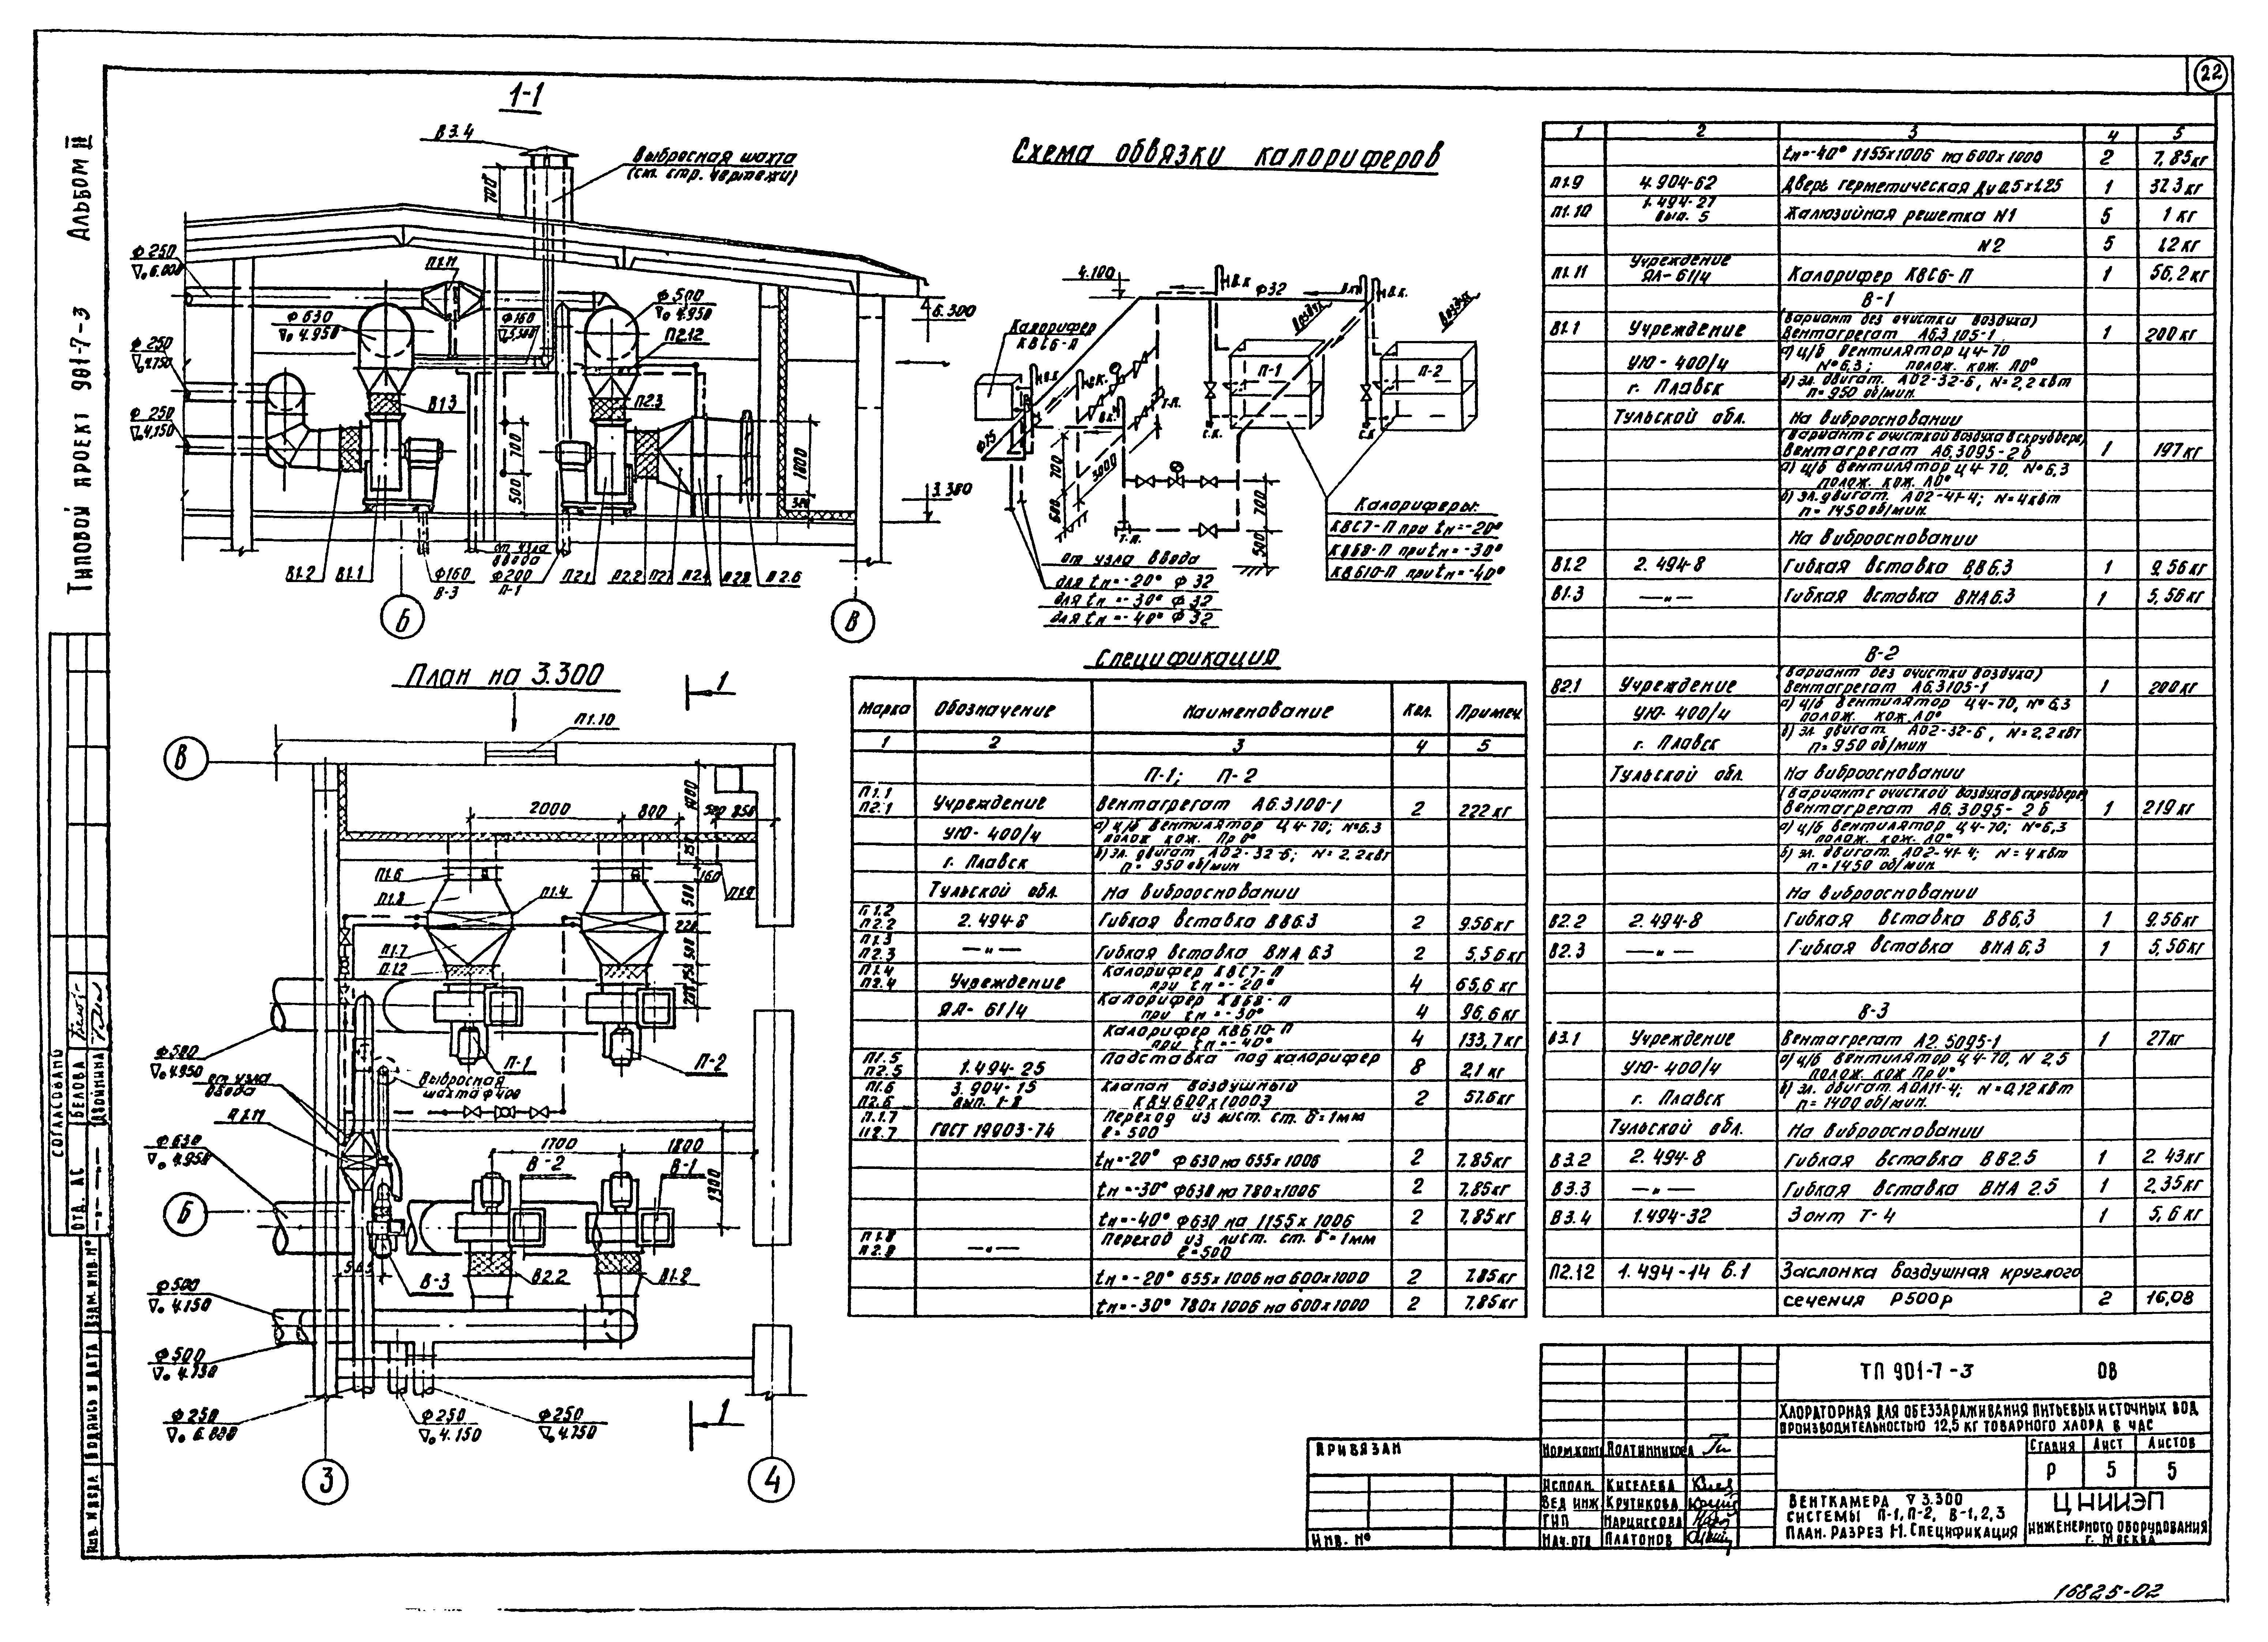 22
Типовой проект 901-7-3 Альбом II
1-1
В3.4
Выбросная шахта
(см. стр. чертежи)
700
Ф 250
6.000
П1.11
Ф 630
4.950
Ф160
Ф 500
4.950
П2.12
6.300
Ф 250
4.750
Ф 250
4.150
В1.3
П2.3
700
500
1000
3.300
В1.2
В1.1
Ф160
В-3
от узла
ввода
Ф200
П-1
П2.1
П2.2
П2.6
Б
В
Схема обвязки калориферов
4.100
Н.В.К.
Ф32
Н.В.К.
Воздух
Воздух
Калорифер
КВС6-П
П-1
П-2
Т.П.
С.К.
С.К.
Ф15
700
600
3000
Т.П.
700
500
от узла ввода
для tн=-20° Ф 32
для tн=-30° Ф 32
для tн=-40° Ф 32
Калориферы:
КВС7-П при tн=-20°
КВБ8-П при tн=-30°
КВБ10-П при tн=-40°
План на 3.300
1
П1.10
В
2000
800
500
850
П1.6
160
П1.9
П1.8
П1.4
500
220
П1.7
500
П1.2
250
П-1
П-2
Ф500
4.950
от узла
ввода
Выбросная
шахта Ф400
Ф 630
4.950
1700
1800
В-2
В-1
1300
Б
В-3
В2.2
В1.2
Ф500
4.150
Ф500
4.750
Ф 250
6.000
Ф250
4.150
Ф250
4.750
1
3
4
Спецификация
Марка Обозначение Наименование Кол. Примеч.
1 2 3 4 5
П-1; П-2
П1.1
П2.1 Учреждение Вентагрегат А6.3100-1 2 222 кг
УЮ-400/4 а) ц/б вентилятор Ц4-70; №6.3
полож. кож. Пр0°
г. Плавск б) эл. двигат. АО2-32-6; N=2,2 квт
n=950 об/мин
Тульской обл. На виброосновании
П1.2
П2.2 2.494-8 Гибкая вставка ВВ6.3 2 9.56 кг
П1.3
П2.3 —„— Гибкая вставка ВНА 6.3 2 5,56 кг
П1.4
П2.4 Учреждение Калорифер КВС7-П
при tн=-20° 4 65,6 кг
ЯЛ-61/4 Калорифер КВБ8-П
при tн=-30° 4 96,6 кг
Калорифер КВБ10-П
при tн=-40° 4 133,7 кг
П1.5
П2.5 1.494-25 Подставка под калорифер 8 2,1 кг
П1.6
П2.6 3.904-15
вып. 1-8 Клапан воздушный
КВУ600х1000Э 2 57.6 кг
П.1.7
П2.7 ГОСТ 19903-74 Переход из лист. ст. δ=1мм
ℓ=500
tн=-20° Ф630 на 655х1006 2 7.85 кг
tн=-30° Ф630 на 780х1006 2 7,85 кг
tн=-40° Ф630 на 1155х1006 2 7,85 кг
П1.8
П2.8 —„— Переход из лист. ст. δ=1мм
ℓ=500
tн=-20° 655х1006 на 600х1000 2 7.85 кг
tн=-30° 780х1006 на 600х1000 2 7,85 кг
1 2 3 4 5
tн=-40° 1155х1006 на 600х1000 2 7,85 кг
П1.9 4.904-62 Дверь герметическая Ду 0.5х1.25 1 32.3 кг
П1.10 1.494-27
вып. 5 Жалюзийная решетка N1 5 1 кг
N2 5 1.2 кг
П1.11 Учреждение
ЯЛ-61/4 Калорифер КВС6-П 1 56,2 кг
В-1
В1.1 Учреждение (Вариант без очистки воздуха)
Вентагрегат А6.3105-1 1 200 кг
УЮ-400/4 а) ц/б вентилятор Ц4-70
№6,3; полож. кож. Л0°
г. Плавск б) эл. двигат. АО2-32-6, N=2,2 квт
n=950 об/мин.
Тульской обл. На виброосновании
(Вариант с очисткой воздуха в скруббере)
Вентагрегат А6.3095-2б 1 197 кг
а) ц/б вентилятор Ц4-70, №6,3
полож. кож. Л0°
б) эл. двигат. АО2-41-4; N=4 квт
n=1450 об/мин.
На виброосновании
В1.2 2.494-8 Гибкая вставка ВВ6.3 1 9,56 кг
В1.3 —„— Гибкая вставка ВНА6.3 1 5,56 кг
В-2
В2.1 Учреждение (Вариант без очистки воздуха)
Вентагрегат А6.3105-1 1 200 кг
УЮ-400/4 а) ц/б вентилятор Ц4-70, №6,3
полож. кож. Л0°
г. Плавск б) эл. двигат. АО2-32-6, N=2,2 квт
n=950 об/мин
Тульской обл. На виброосновании
(Вариант с очисткой воздуха в скруббере)
Вентагрегат А6.3095-2б 1 219 кг
а) ц/б вентилятор Ц4-70; №6,3
полож. кож. Л0°
б) эл. двигат. АО2-41-4; N=4 квт
n=1450 об/мин.
На виброосновании
В2.2 2.494-8 Гибкая вставка ВВ6,3 1 9.56 кг
В2.3 —„— Гибкая вставка ВНА 6,3 1 5,56 кг
В-3
В3.1 Учреждение Вентагрегат А2.5095-1 1 27 кг
УЮ-400/4 а) ц/б вентилятор Ц4-70, N 2,5
полож. кож Пр0°
г. Плавск б) эл. двигат. АОЛ11-4; N=0,12 квт
n=1400 об/мин.
Тульской обл. На виброосновании
В3.2 2.494-8 Гибкая вставка ВВ2.5 1 2.43 кг
В3.3 —„— Гибкая вставка ВНА 2.5 1 2,35 кг
В3.4 1.494-32 Зонт Т-4 1 5,6 кг
П2.12 1.494-14 в.1 Заслонка воздушная круглого
сечения Р500р 2 16,08
ТП 901-7-3 ОВ
Хлораторная для обеззараживания питьевых источных вод
производительностью 12,5 кг товарного хлора в час
Стадия Лист Листов
Р 5 5
Венткамера 3.300
Системы П-1, П-2, В-1,2,3
План. Разрез 1-1. Спецификация
ЦНИИЭП
инженерного оборудования
г. Москва
Норм.конт. Полтинникова
Исполн. Киселева
Вед инж. Крутикова
ГИП Нарциссова
Нач.отд Платонов
Привязан
Инв. №
Согласовано
Отд. АС Белова
Двойнина
Инв. № подл. Подпись и дата Взам. инв. №
16825-02